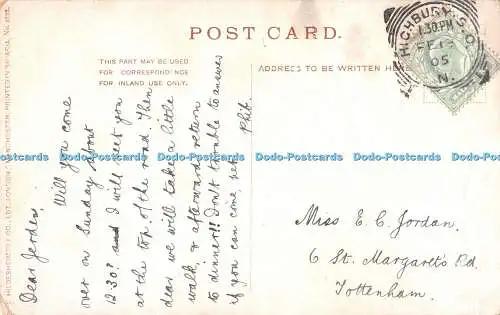 POST CARD.
THIS PART MAY BE USED
FOR CORRESPONDENCE
FOR INLAND USE ONLY.
ADDRESS TO BE WRITTEN HERE
HIGHBURY S.O.
1.30 PM
FE 1
05
N.
Dear Jerden,
Will you come
over on Sunday about
12.30? and I will meet you
at the top of the road. Then
dear we will take a little
walk, & afterward return
to dinner!! Don't trouble to answer
if you can come, yet
Phil.
Miss E. C. Jordan.
6 St. Margaret's Rd.
Tottenham.
HILDESHEIMER & CO. LTD. LONDON & MANCHESTER. PRINTED IN
Dodo-Postcards Dodo-Postcards Dodo-Postcards Dodo-Postcards Dodo-Postcards Dodo-Postcards